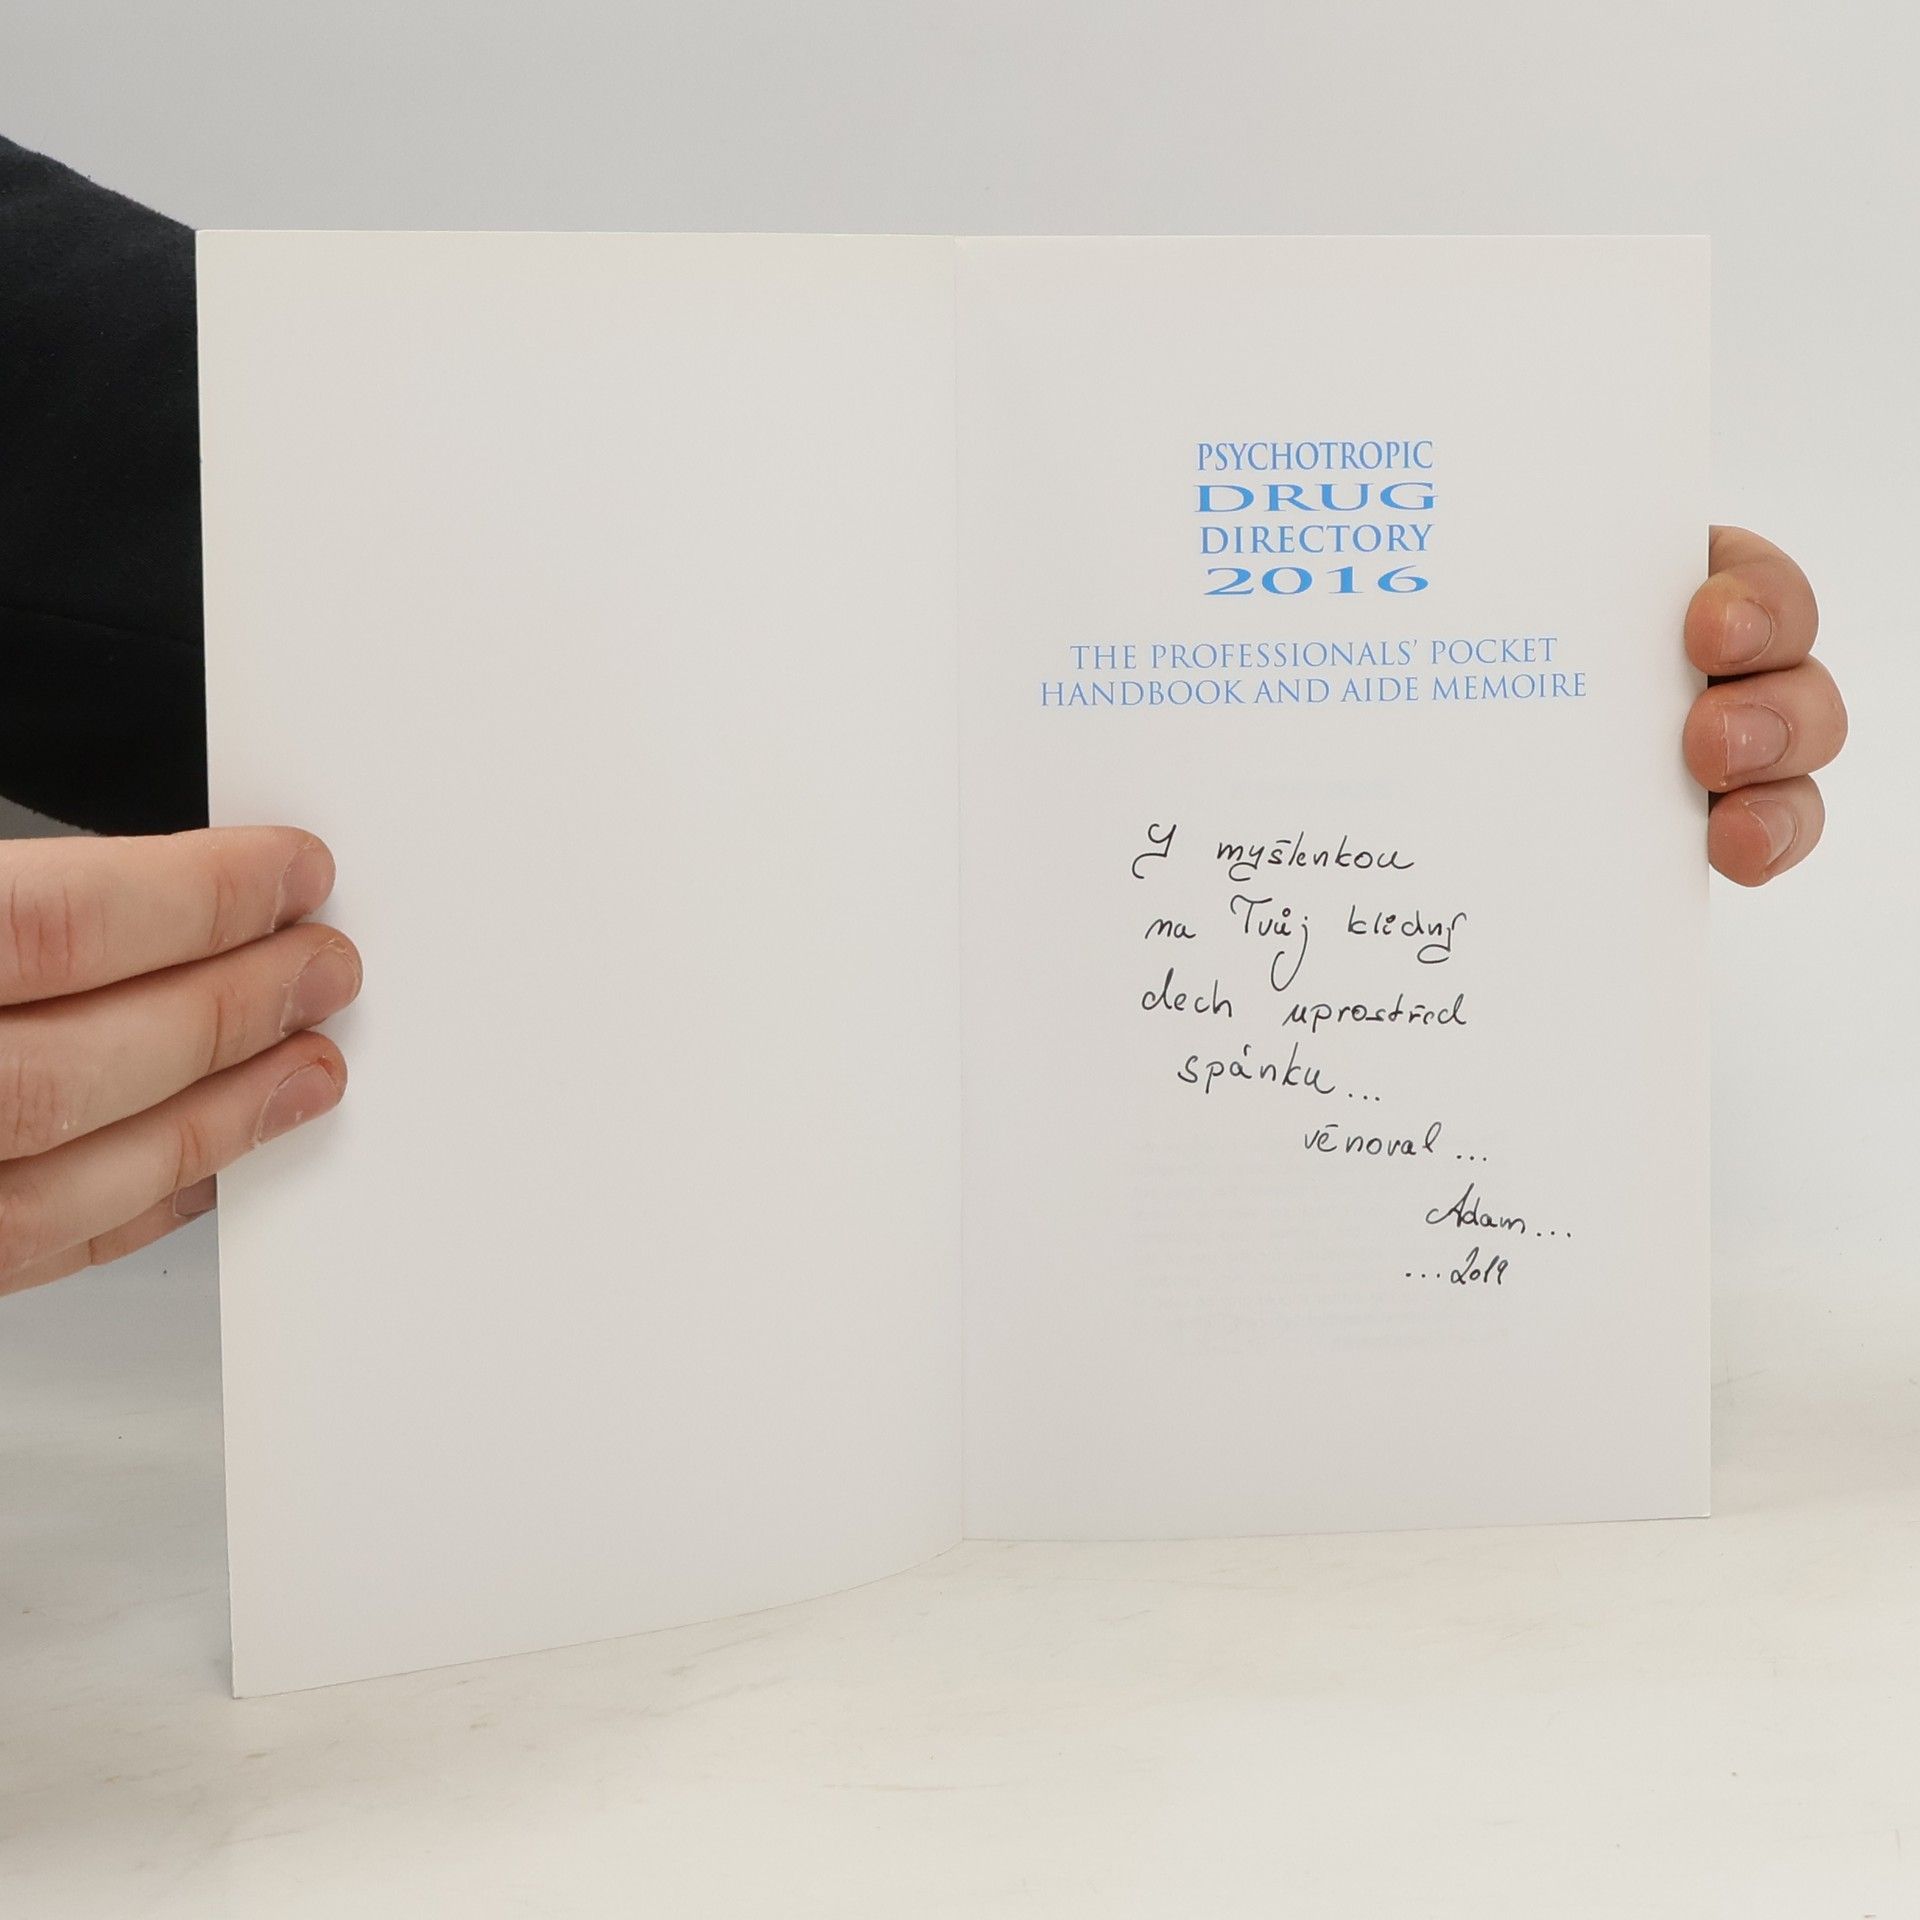 PSYCHOTROPIC
DRUG
DIRECTORY
2016
THE PROFESSIONALS' POCKET
HANDBOOK AND AIDE MEMOIRE
S myšlenkou
na Tvůj klidný
dech uprostřed
spánku...
věnoval...
Adam...
...2019